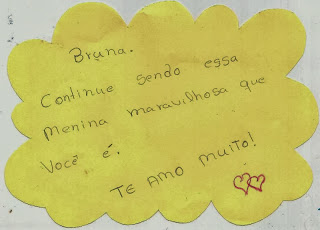 Bruna.
Continue sendo essa
menina maravilhosa que
você é.
TE AMO MUITO!